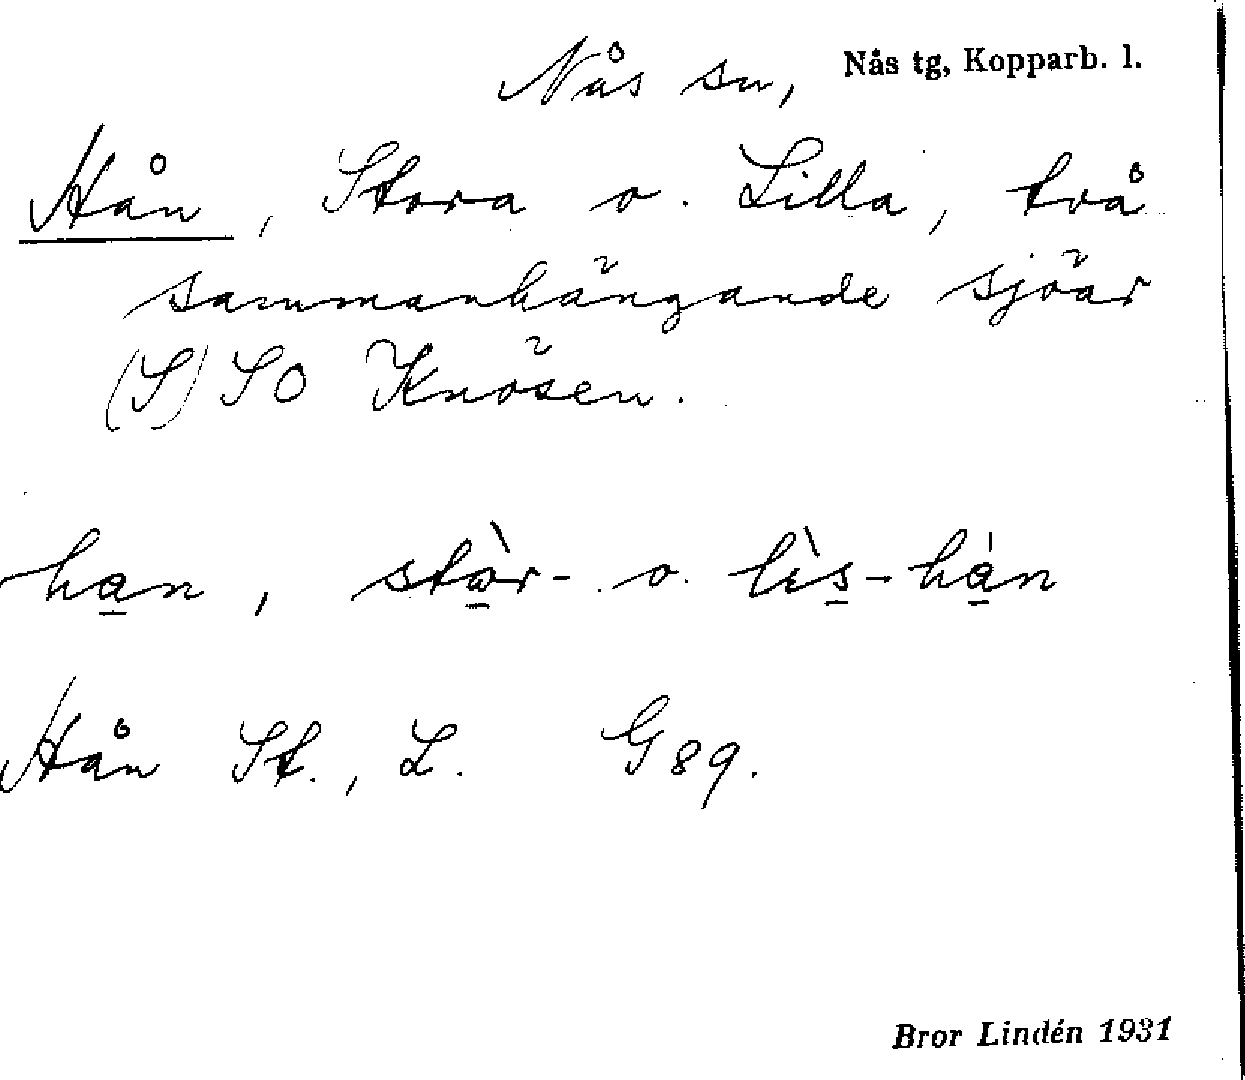 Nås sn, Nås tg, Kopparb. l.
Hån, Stora o. Lilla, två
sammanhängande sjöar
(S) SO Knösen.
ha̱n, stò̱r- o. lìs̱-há̱n
Hån St., L. G 89.
Bror Lindén 1931